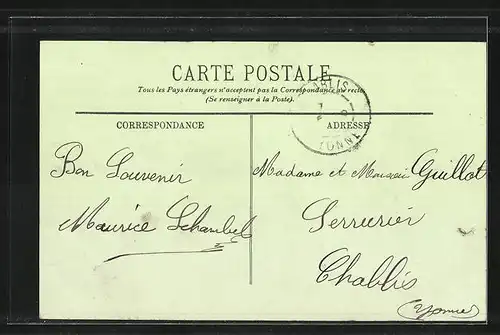 CARTE POSTALE
Tous les Pays étrangers n'acceptent pas la Correspondance au recto
(Se renseigner à la Poste).
CHABLIS
YONNE
CORRESPONDANCE
ADRESSE
Bon Souvenir
Maurice
Madame et Monsieur Guillot
Serrurier
Chablis
(Yonne)